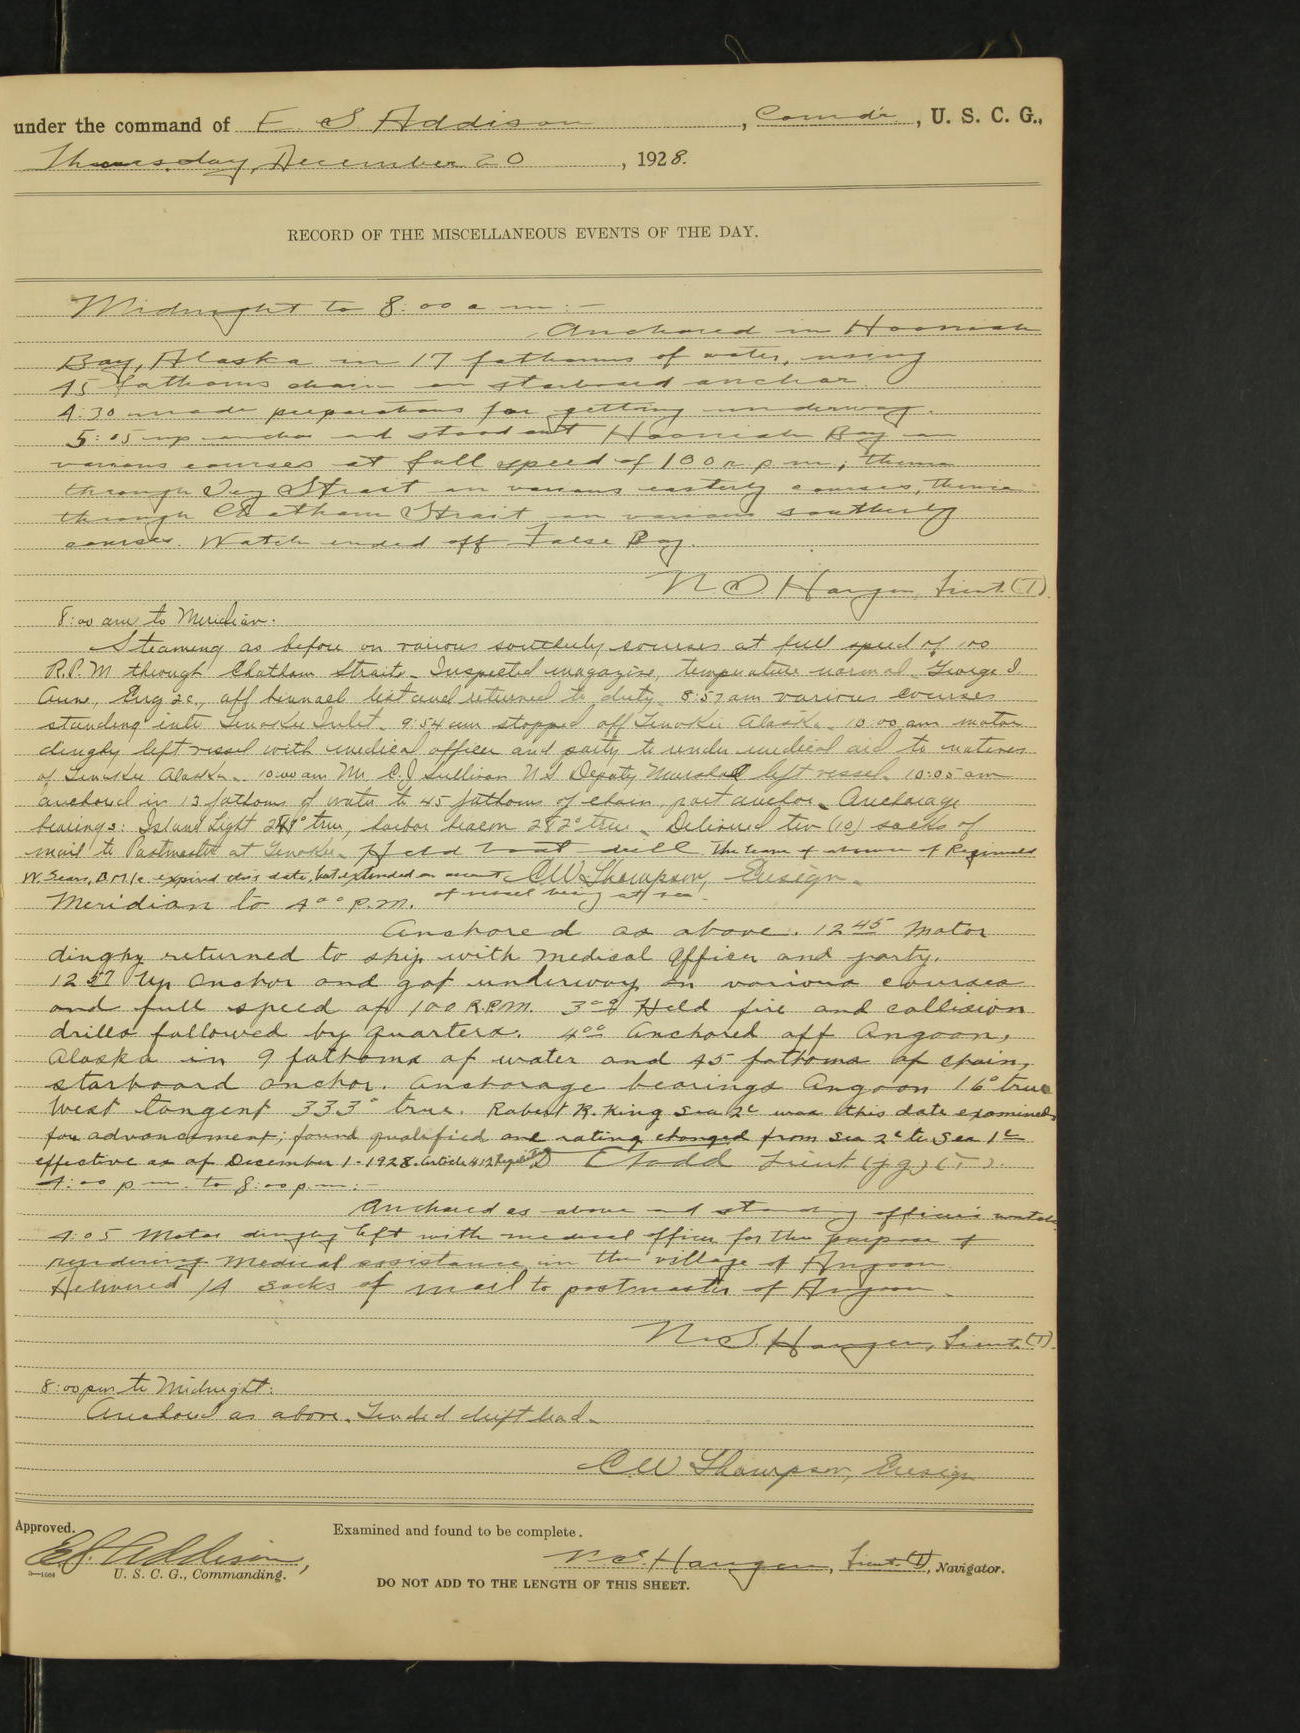 under the command of E S Addison, Comdr, U. S. C. G.,
Thursday, December 20, 1928.
RECORD OF THE MISCELLANEOUS EVENTS OF THE DAY.
Midnight to 8:00 a m:-
Anchored in Hooniah
Bay, Alaska in 17 fathoms of water, using
45 fathoms chain on starboard anchor.
4:30 made preparations for getting underway.
5:05 up anchor and stood out Hooniah Bay on
various courses at full speed of 100 r p m; thence
through Icy Strait on various easterly courses, thence
through Chatham Strait on various southerly
courses. Watch ended off False Bay.
N S Haugen, Lieut. (T).
8:00 am to Meridian.
Steaming as before on various southerly courses at full speed of 100
R.P.M through Chatham Straits. Inspected magazine, temperature normal. George I
Aune, Eng 2c, off binnacle list and returned to duty. 8:57 am various courses
standing into Tenakee Inlet. 9:54 am stopped off Tenakee Alaska. 10:00 am motor
dinghy left vessel with medical officer and party to render medical aid to natives
of Tenakee Alaska. 10:00 am Mr. C. J Sullivan US Deputy Marshal left vessel. 10:05 am
anchored in 13 fathoms of water to 45 fathoms of chain, port anchor. Anchorage
bearings: Island Light true, harbor beacon 282° true. Delivered ten (10) sacks of
mail to Postmaster at Tenakee. Held boat drill. The leave of absence of Reginald
W. Sears, B.M.1c expired this date, but extended on account C W Thompson, Ensign.
of vessel being at sea.
Meridian to 4 00 P.M.
Anchored as above. 12 45 Motor
dinghy returned to ship with Medical Officer and party.
12 57 Up anchor and got underway on various courses
and full speed of 100 R.P.M. Held fire and collision
drills followed by quarters. 4 00 Anchored off Angoon,
Alaska in 9 fathoms of water and 45 fathoms of chain,
starboard anchor. Anchorage bearings Angoon 16° true
West tangent 333° true. Robert R. King Sea 2c was this date examined
for advancement; found qualified and rating changed from Sea 2c to Sea 1c
effective as of December 1-1928. Article 412 Regulations Todd Lieut (jg) (T).
4:00 p m. to 8:00 p.m:-
Anchored as above and standing officer's watch
4:05 Motor dinghy left with medical officer for the purpose of
rendering medical assistance in the village of Angoon.
Delivered 14 sacks of mail to postmaster of Angoon.
N. S. Haugen, Lieut. (T).
8:00 pm to Midnight:
Anchored as above. Tended drift lead.
C W Thompson, Ensign
Approved.
Examined and found to be complete.
E S. Addison,
U. S. C. G., Commanding.
N. S. Haugen, Lieut. (T), Navigator.
DO NOT ADD TO THE LENGTH OF THIS SHEET.